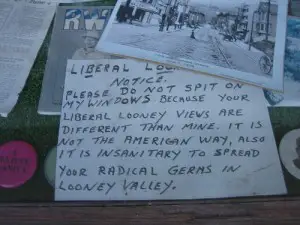 LIBERAL
NOTICE.
PLEASE DO NOT SPIT ON
MY WINDOWS BECAUSE YOUR
LIBERAL LOONEY VIEWS ARE
DIFFERENT THAN MINE. IT IS
NOT THE AMERICAN WAY, ALSO
IT IS INSANITARY TO SPREAD
YOUR RADICAL GERMS IN
LOONEY VALLEY.